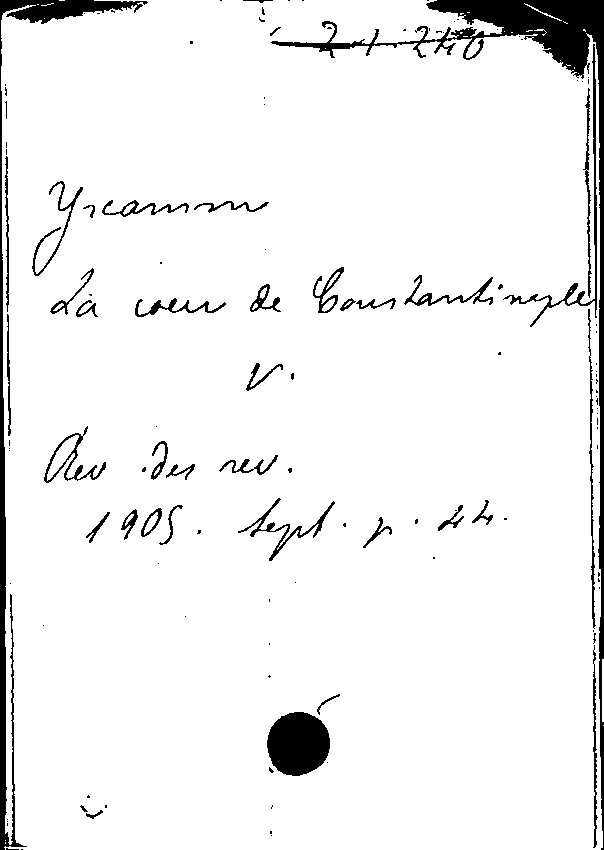 2.1.240
Yreamm
La cour de Constantinople
V.
Rev. des rev.
1905. Sept. p. 44.